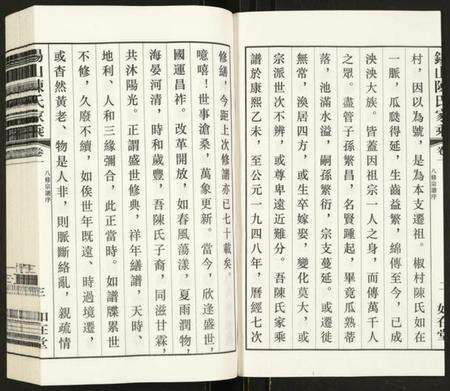 村，因以為號，是為本支遷祖。椒村陳氏如在
一脈，瓜瓞得延，生齒益繁，綿傳至今，已成
泱泱大族。皆蓋因祖宗一人之身，而傳萬千人
之眾。盡管子孫繁昌，名賢踵起，畢竟瓜熟蒂
落，池滿水溢，嗣孫繁衍，宗支蔓延。或遷徙
無常，渙居四方，或生卒嫁娶，變化莫大，或
宗派世次不辨，或尊卑遠近難分。吾陳氏家乘
譜於康熙乙未，至公元一九四八年，曆經七次
修繕，今距上次修譜亦已七十載矣。
噫嘻！世事滄桑，萬象更新。當今，欣逢盛世，
國運昌祚。改革開放，如春風蕩漾，夏雨潤物，
海晏河清，時和歲豐，吾陳氏子裔，同滋甘霖，
共沐陽光。正謂盛世修典，祥年繕譜，天時、
地利、人和三緣彌合，此正當時。如譜牒累世
不修，久廢不續，如俟世年既遠，時過境遷，
或杳然黃老、物是人非，則脈斷絡亂，親疏情
錫山陳氏家乘
卷一
八修宗譜序
三